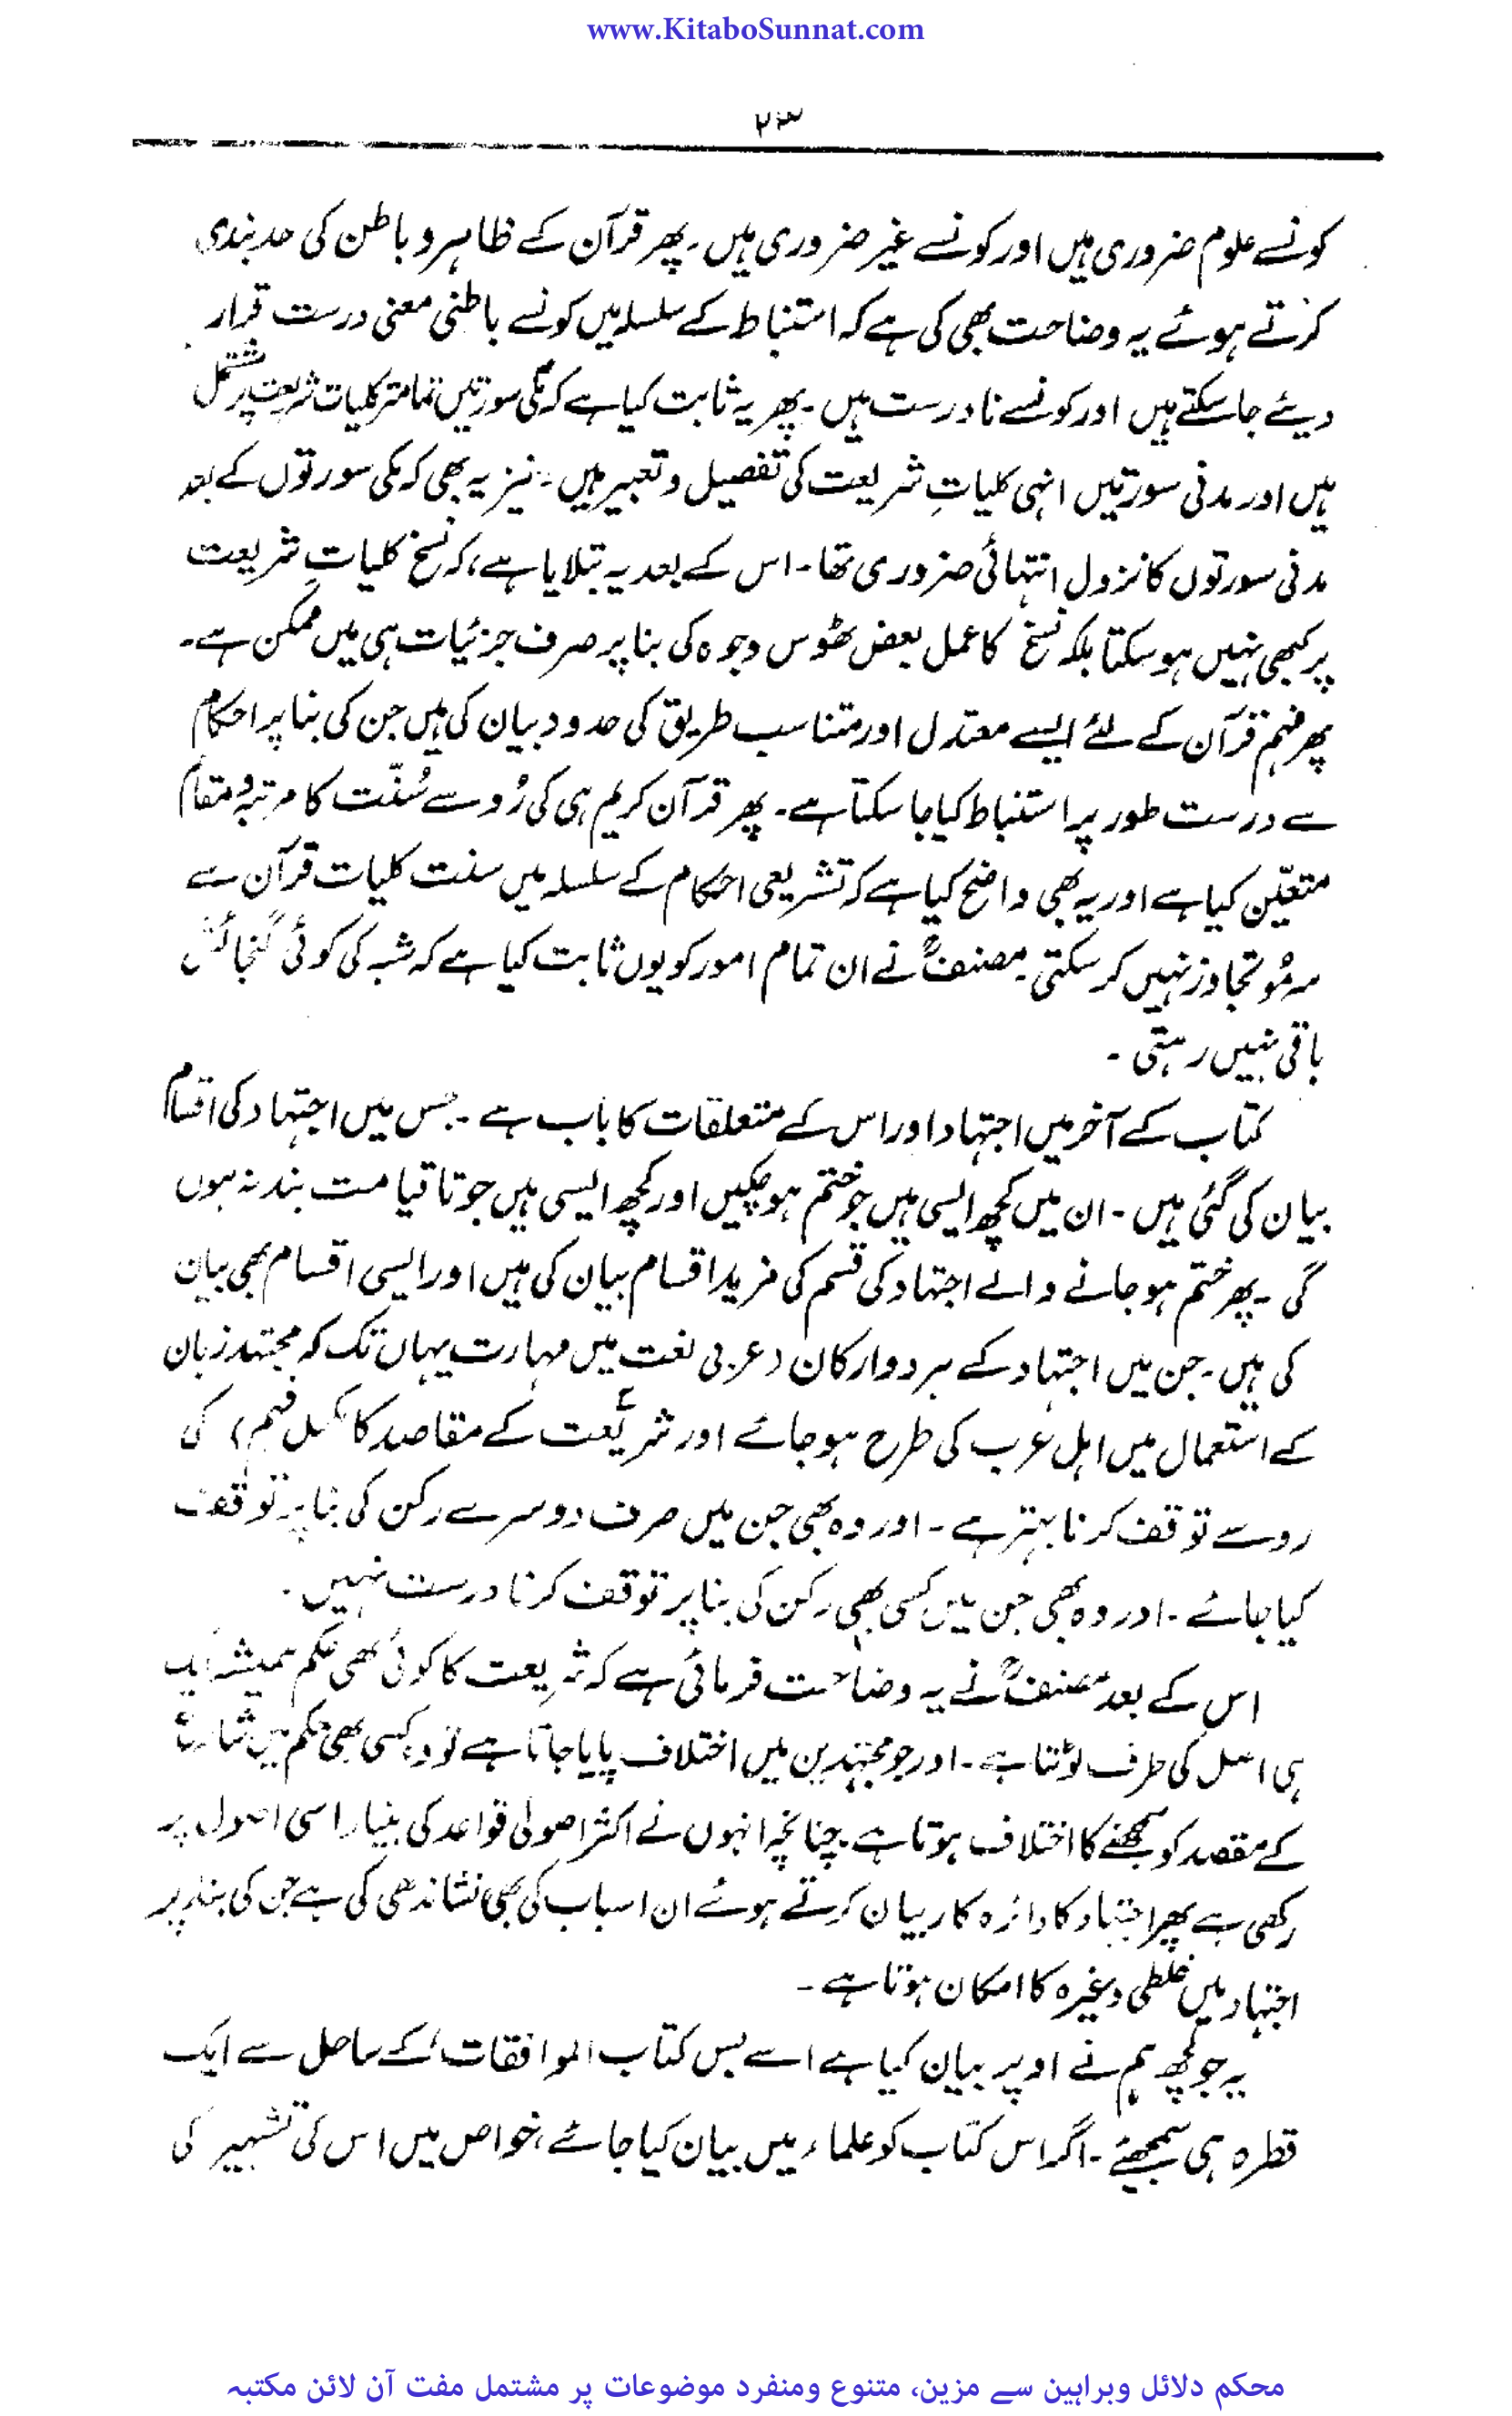 www.KitaboSunnat.com
۲۳
کونسے علوم ضروری ہیں اور کونسے غیر ضروری ہیں۔ پھر قرآن کے ظاہر و باطن کی حد بندی
کرتے ہوئے یہ وضاحت بھی کی ہے کہ استنباط کے سلسلہ میں کونسے باطنی معنی درست قرار
دیئے جا سکتے ہیں اور کونسے نادرست ہیں۔ پھر یہ ثابت کیا ہے کہ مکی سورتیں تمامتر کلیات شریعت پر مشتمل
ہیں اور مدنی سورتیں انہی کلیاتِ شریعت کی تفصیل و تعبیر ہیں۔ نیز یہ بھی کہ مکی سورتوں کے بعد
مدنی سورتوں کا نزول انتہائی ضروری تھا۔ اس کے بعد یہ بتلایا ہے، کہ نسخ کلیاتِ شریعت
پر کبھی نہیں ہو سکتا بلکہ نسخ کا عمل بعض ٹھوس وجوہ کی بنا پر صرف جزئیات ہی میں ممکن ہے۔
پھر فہم قرآن کے لئے ایسے معتدل اور متناسب طریق کی حدود بیان کی ہیں جن کی بنا پر احکام
سے درست طور پر استنباط کیا جا سکتا ہے۔ پھر قرآن کریم ہی کی رُو سے سُنّت کا مرتبہ و مقام
متعیّن کیا ہے اور یہ بھی واضح کیا ہے کہ تشریعی احکام کے سلسلہ میں سنت کلیات قرآن سے
سرمُو تجاوز نہیں کر سکتی۔ مصنفؒ نے ان تمام امور کو یوں ثابت کیا ہے کہ شبہ کی کوئی گنجائش
باقی نہیں رہتی۔
کتاب کے آخر میں اجتہاد اور اس کے متعلقات کا باب ہے۔ جس میں اجتہاد کی اقسام
بیان کی گئی ہیں۔ ان میں کچھ ایسی ہیں جو ختم ہو چکیں اور کچھ ایسی ہیں جو تا قیامت بند نہ ہوں
گی۔ پھر ختم ہو جانے والے اجتہاد کی قسم کی مزید اقسام بیان کی ہیں اور ایسی اقسام بھی بیان
کی ہیں۔ جن میں اجتہاد کے ہر دو ارکان (عربی لغت میں مہارت یہاں تک کہ مجتہد زبان
کے استعمال میں اہل عرب کی طرح ہو جائے اور شریعت کے مقاصد کا مکمل فہم) کی
رو سے توقف کرنا بہتر ہے۔ اور وہ بھی جن میں صرف دوسرے رکن کی بنا پر توقف
کیا جائے۔ اور وہ بھی جن میں کسی بھی رکن کی بنا پر توقف کرنا درست نہیں۔
اس کے بعد مصنفؒ نے یہ وضاحت فرمائی ہے کہ شریعت کا کوئی بھی حکم ہمیشہ ایک
ہی اصل کی طرف لوٹتا ہے۔ اور جو مجتہدین میں اختلاف پایا جاتا ہے تو وہ کسی بھی حکم میں شارع
کے مقصد کو سمجھنے کا اختلاف ہوتا ہے۔ چنانچہ انہوں نے اکثر اصولی قواعد کی بنیاد اسی اصول پر
رکھی ہے پھر اجتہاد کا دائرہ کار بیان کرتے ہوئے ان اسباب کی بھی نشاندھی کی ہے جن کی بناء پر
اجتہاد میں غلطی وغیرہ کا امکان ہوتا ہے۔
یہ جو کچھ ہم نے اوپر بیان کیا ہے اسے بس کتاب الموافقات' کے ساحل سے ایک
قطرہ ہی سمجھئے۔ اگر اس کتاب کو علماء میں بیان کیا جائے، خواص میں اس کی تشہیر کی
محکم دلائل وبراہین سے مزین، متنوع ومنفرد موضوعات پر مشتمل مفت آن لائن مکتبہ